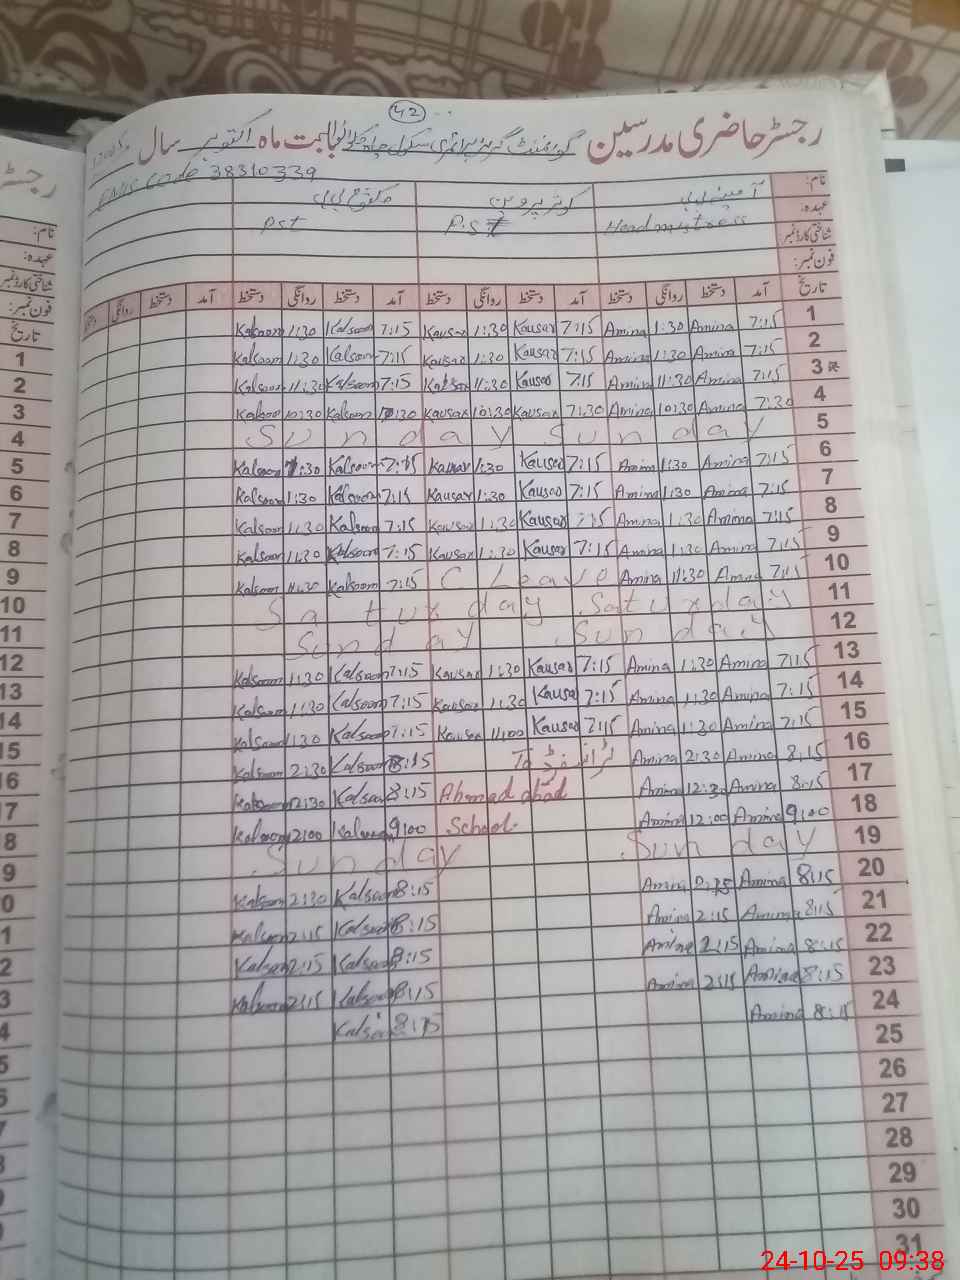 42
رجسٹر حاضری مدرسین گورنمنٹ گرلز پرائمری سکول بابت ماہ اکتوبر سال
EMIS Code 38310339
نام: آمینہ بی بی کوثر پروین کلثوم بی بی
عہدہ: Headmistress P.S.T Pst
شناختی کارڈ نمبر:
فون نمبر:
تاریخ آمد دستخط روانگی دستخط آمد دستخط روانگی دستخط آمد دستخط روانگی دستخط آمد دستخط روانگی دستخط
1 7:15 Amina 1:30 Amina 7:15 Kausar 1:30 Kausar 7:15 Kalsoom 1:30 Kalsoom
2 7:15 Amina 1:30 Amina 7:15 Kausar 1:30 Kausar 7:15 Kalsoom 1:30 Kalsoom
3 7:15 Amina 11:30 Amina 7:15 Kausar 11:30 Kausar 7:15 Kalsoom 11:30 Kalsoom
4 7:30 Amina 10:30 Amina 7:30 Kausar 10:30 Kausar Kalsoom 10:30 Kalsoom
5 Sunday Sunday
6 7:15 Amina 1:30 Amina 7:15 Kausar 1:30 Kausar 7:15 Kalsoom 1:30 Kalsoom
7 7:15 Amina 1:30 Amina 7:15 Kausar 1:30 Kausar 7:15 Kalsoom 1:30 Kalsoom
8 7:15 Amina 1:30 Amina 7:15 Kausar 1:30 Kausar 7:15 Kalsoom 1:30 Kalsoom
9 7:15 Amina 1:30 Amina 7:15 Kausar 1:30 Kausar 7:15 Kalsoom 11:30 Kalsoom
10 7:15 Amina 11:30 Amina C Leave 7:15 Kalsoom 11:30 Kalsoom
11 Saturday Saturday
12 Sunday Sunday
13 7:15 Amina 1:30 Amina 7:15 Kausar 1:30 Kausar 7:15 Kalsoom 1:30 Kalsoom
14 7:15 Amina 1:30 Amina 7:15 Kausar 1:30 Kausar 7:15 Kalsoom 1:30 Kalsoom
15 7:15 Amina 1:30 Amina 7:15 Kausar 11:00 Kausar 7:15 Kalsoom 1:30 Kalsoom
16 8:15 Amina 2:30 Amina ٹرانسفر To 8:15 Kalsoom 2:30 Kalsoom
17 8:15 Amina 12:30 Amina Ahmad abad 8:15 Kalsoom 12:30 Kalsoom
18 9:00 Amina 12:00 Amina School. 9:00 Kalsoom 2:00 Kalsoom
19 Sunday Sunday
20 8:15 Amina Amina 8:15 Kalsoom 2:30 Kalsoom
21 8:15 Amina 2:15 Amina 8:15 Kalsoom 2:15 Kalsoom
22 8:15 Amina 2:15 Amina 8:15 Kalsoom 2:15 Kalsoom
23 8:15 Amina 2:15 Amina 8:15 Kalsoom 2:15 Kalsoom
24 8:15 Amina 8:15 Kalsoom
25
26
27
28
29
30
31
24-10-25 09:38